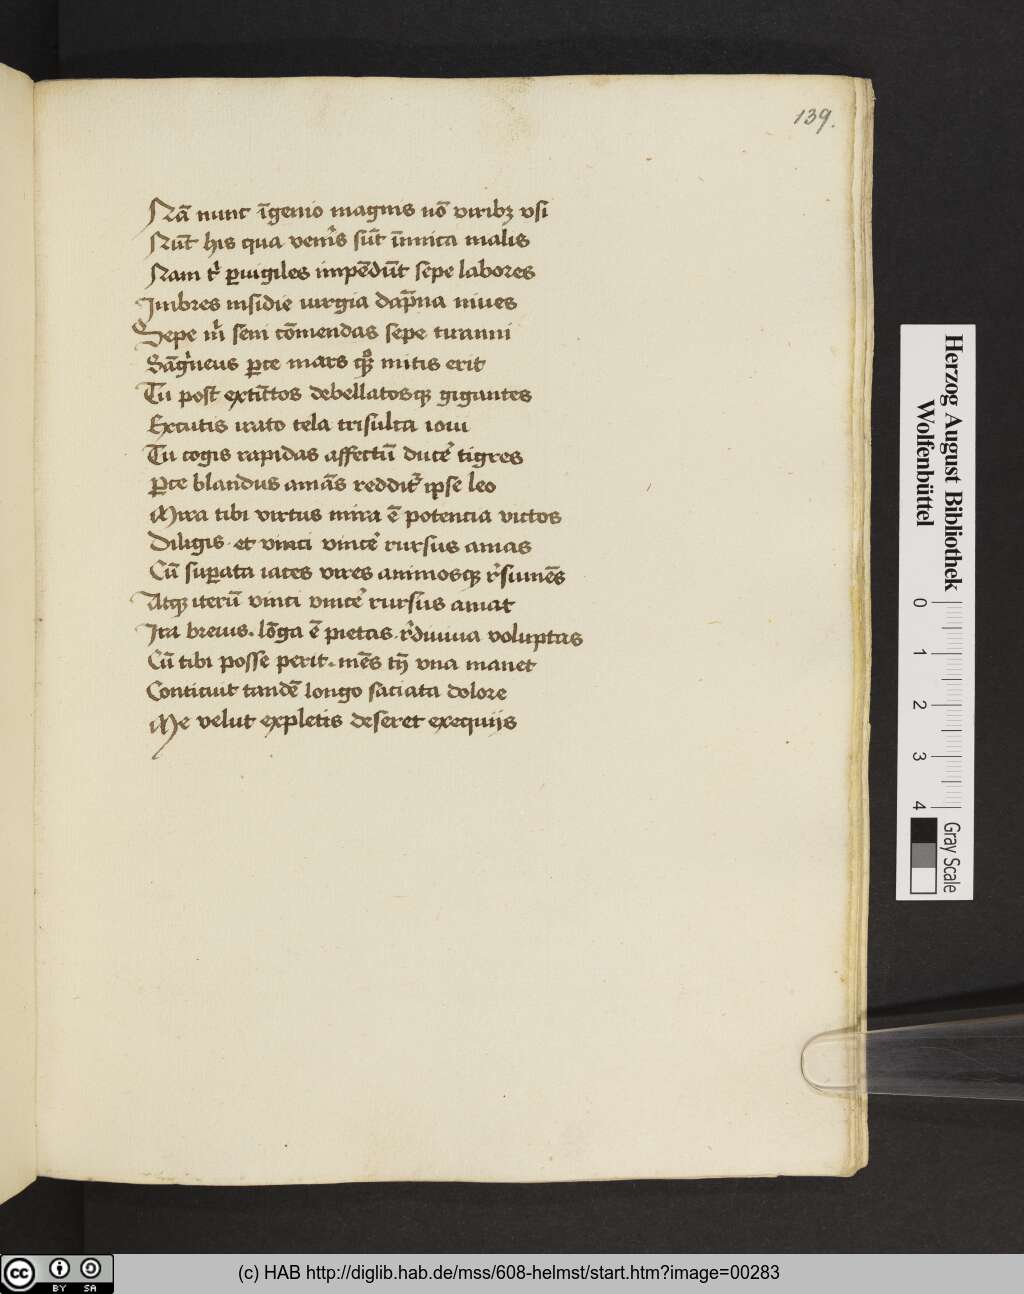 139.
Nā nunt īgenio magnis nō viribꝫ vsi
Nūt his qua venīs sūt īimica malis
Nam tͥ ꝑuigiles impēdūt sepe labores
Imbres insidie iurgia dāpna niues
Sepe mͥ seni cōmendas sepe tiranni
Sāgͥneus ꝑte mars qꝫ mitis erit
Tu post extīctos debellatosqꝫ gigantes
Excutis irato tela trisulca ioui
Tu cogis rapidas affectū ducē tigres
Ꝑte blandus amās redditͬ ipse leo
Mira tibi virtus mira ē potencia victos
Diligis et vinci vincē rursus amas
Cū suꝑata iaces vires animosqꝫ rͤsumēs
Atqꝫ iterū vinci vincē rursus amat
Ira breuis. lōga ē pietas. rͤdiuiua voluptas
Cū tibi posse perit. mēs tn̄ vna manet
Conticuit tandē longo saciata dolore
Me velut expletis deseret exequijs
Herzog August Bibliothek
Wolfenbüttel
0 1 2 3 4
Gray Scale
cc BY SA
(c) HAB http://diglib.hab.de/mss/608-helmst/start.htm?image=00283